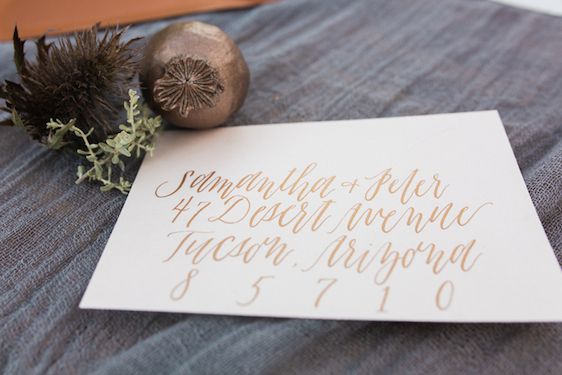 Samantha + Peter
47 Desert Avenue
Tucson, Arizona
8 5 7 1 0